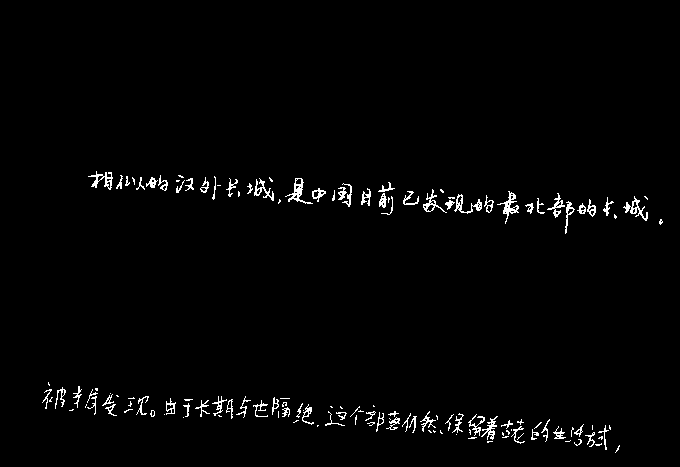 相似的汉外长城,是中国目前已发现的最北部的长城。
被发现。由于长期与世隔绝,这个部落仍然保留着古老的生活方式,